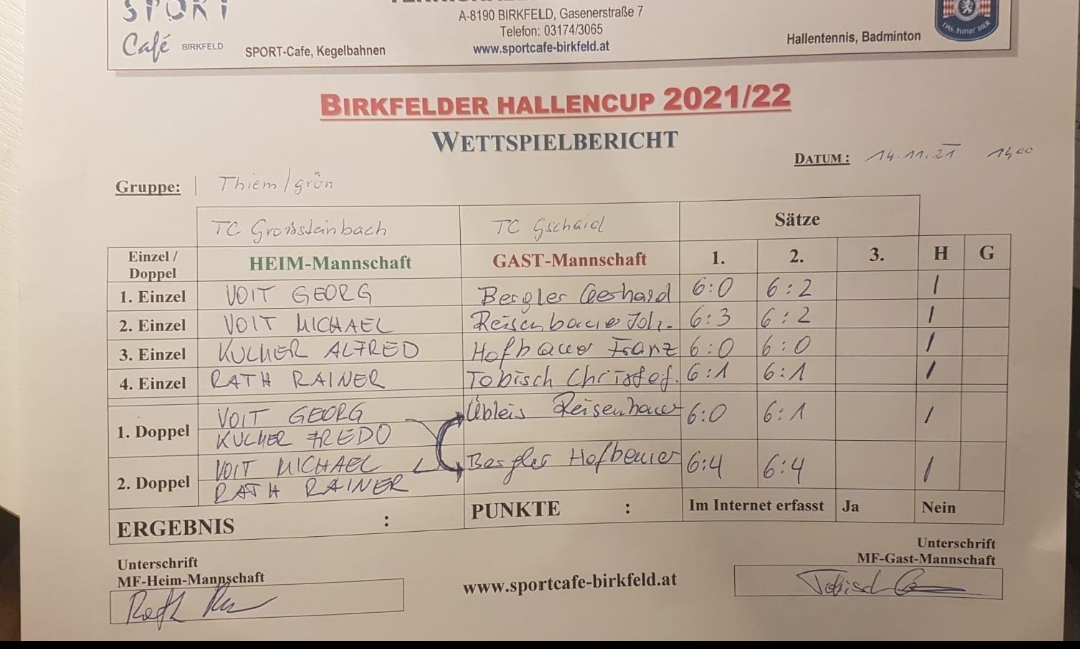 SPORT
Café BIRKFELD
SPORT-Cafe, Kegelbahnen
A-8190 BIRKFELD, Gasenerstraße 7
Telefon: 03174/3065
www.sportcafe-birkfeld.at
Hallentennis, Badminton
BIRKFELDER HALLENCUP 2021/22
WETTSPIELBERICHT
DATUM: 14.11.21 14⁰⁰
Gruppe: Thiem/grün
TC Grossteinbach TC Gschaid Sätze
Einzel / Doppel HEIM-Mannschaft GAST-Mannschaft 1. 2. 3. H G
1. Einzel VOIT GEORG Bergler Gerhard 6:0 6:2 1
2. Einzel VOIT MICHAEL Reisenbauer Joh. 6:3 6:2 1
3. Einzel KULHER ALFRED Hofbauer Franz 6:0 6:0 1
4. Einzel RATH RAINER Tobisch Christof. 6:1 6:1 1
1. Doppel VOIT GEORG Übleis Reisenbauer 6:0 6:1 1
KULHER FREDO
2. Doppel VOIT MICHAEL Bergler Hofbauer 6:4 6:4 1
RATH RAINER
ERGEBNIS : PUNKTE : Im Internet erfasst Ja Nein
Unterschrift
MF-Heim-Mannschaft
www.sportcafe-birkfeld.at
Unterschrift
MF-Gast-Mannschaft
Tobisch